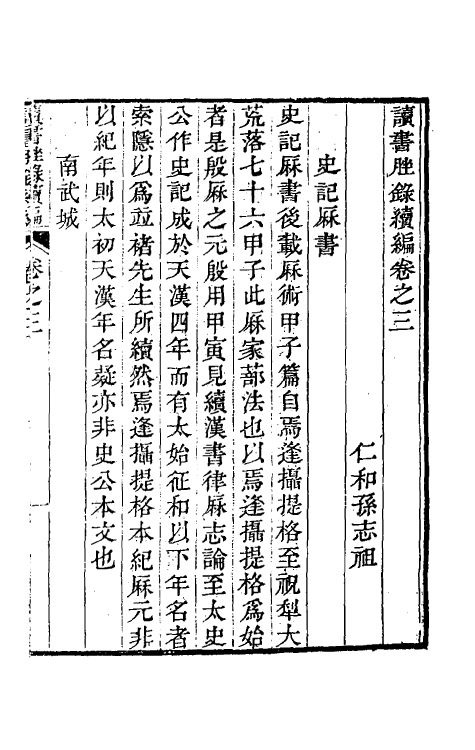 讀書脞錄續編卷之三
仁和孫志祖
史記厤書
史記厤書後載厤術甲子篇自焉逢攝提格至祝犁大
荒落七十六甲子此厤家蔀法也以焉逢攝提格爲始
者是殷厤之元殷用甲寅見續漢書律厤志論至太史
公作史記成於天漢四年而有太始征和以下年名者
索隱以爲竝褚先生所續然焉逢攝提格本紀厤元非
以紀年則太初天漢年名疑亦非史公本文也
南武城
讀書脞錄續編 卷之三